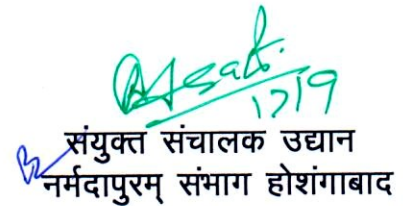 17/9
संयुक्त संचालक उद्यान
नर्मदापुरम् संभाग होशंगाबाद